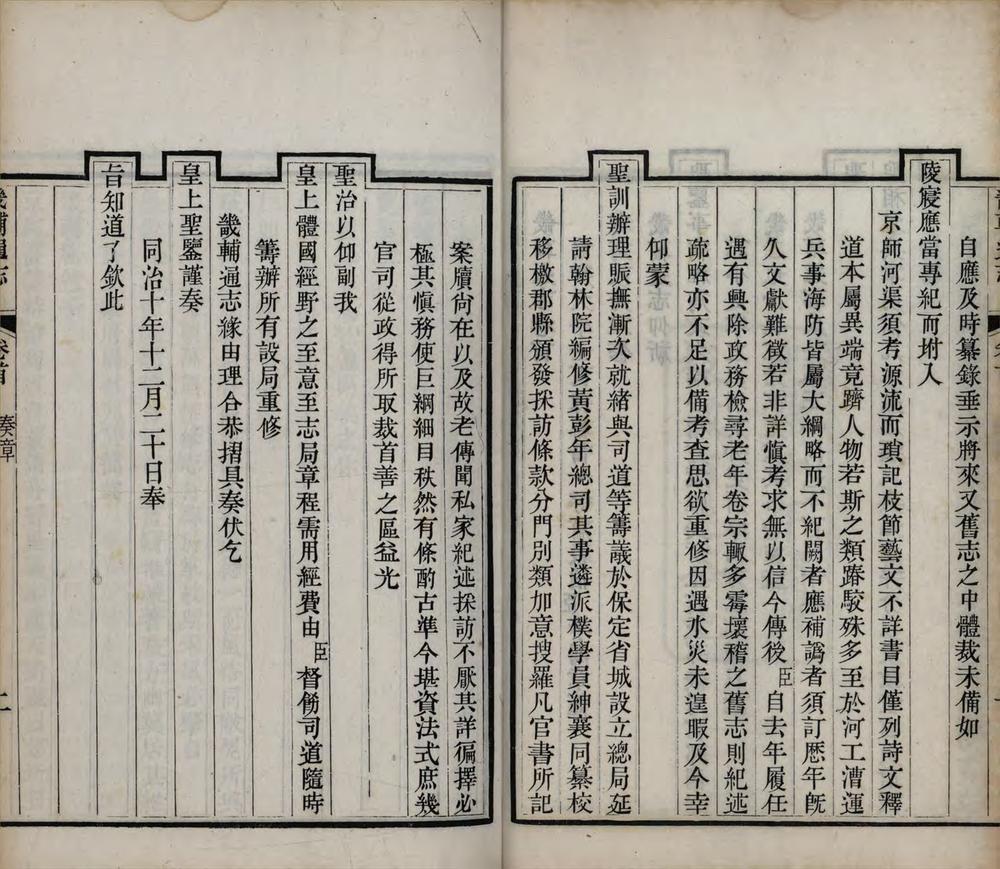 自應及時纂錄垂示將來又舊志之中體裁未備如
陵寢應當專紀而坿入
京師河渠須考源流而瑣記枝節藝文不詳書目僅列詩文釋
道本屬異端竟躋人物若斯之類踳駁殊多至於河工漕運
兵事海防皆屬大綱略而不紀闕者應補譌者須訂歷年旣
久文獻難徵若非詳慎考求無以信今傳後臣自去年履任
遇有興除政務檢尋老年卷宗輒多霉壞稽之舊志則紀述
疏略亦不足以備考查思欲重修因遇水災未遑暇及今幸
仰蒙
聖訓辦理賑撫漸次就緒與司道等籌議於保定省城設立總局延
請翰林院編修黃彭年總司其事遴派樸學員紳襄同纂校
移檄郡縣頒發採訪條款分門別類加意搜羅凡官書所記
案牘尙在以及故老傳聞私家紀述採訪不厭其詳徧擇必
極其慎務使巨綱細目秩然有條酌古準今堪資法式庶幾
官司從政得所取裁首善之區益光
聖治以仰副我
皇上體國經野之至意至志局章程需用經費由臣督飭司道隨時
籌辦所有設局重修
畿輔通志緣由理合恭摺具奏伏乞
皇上聖鑒謹奏
同治十年十二月二十日奉
旨知道了欽此
畿輔通志
卷首
奏章
二